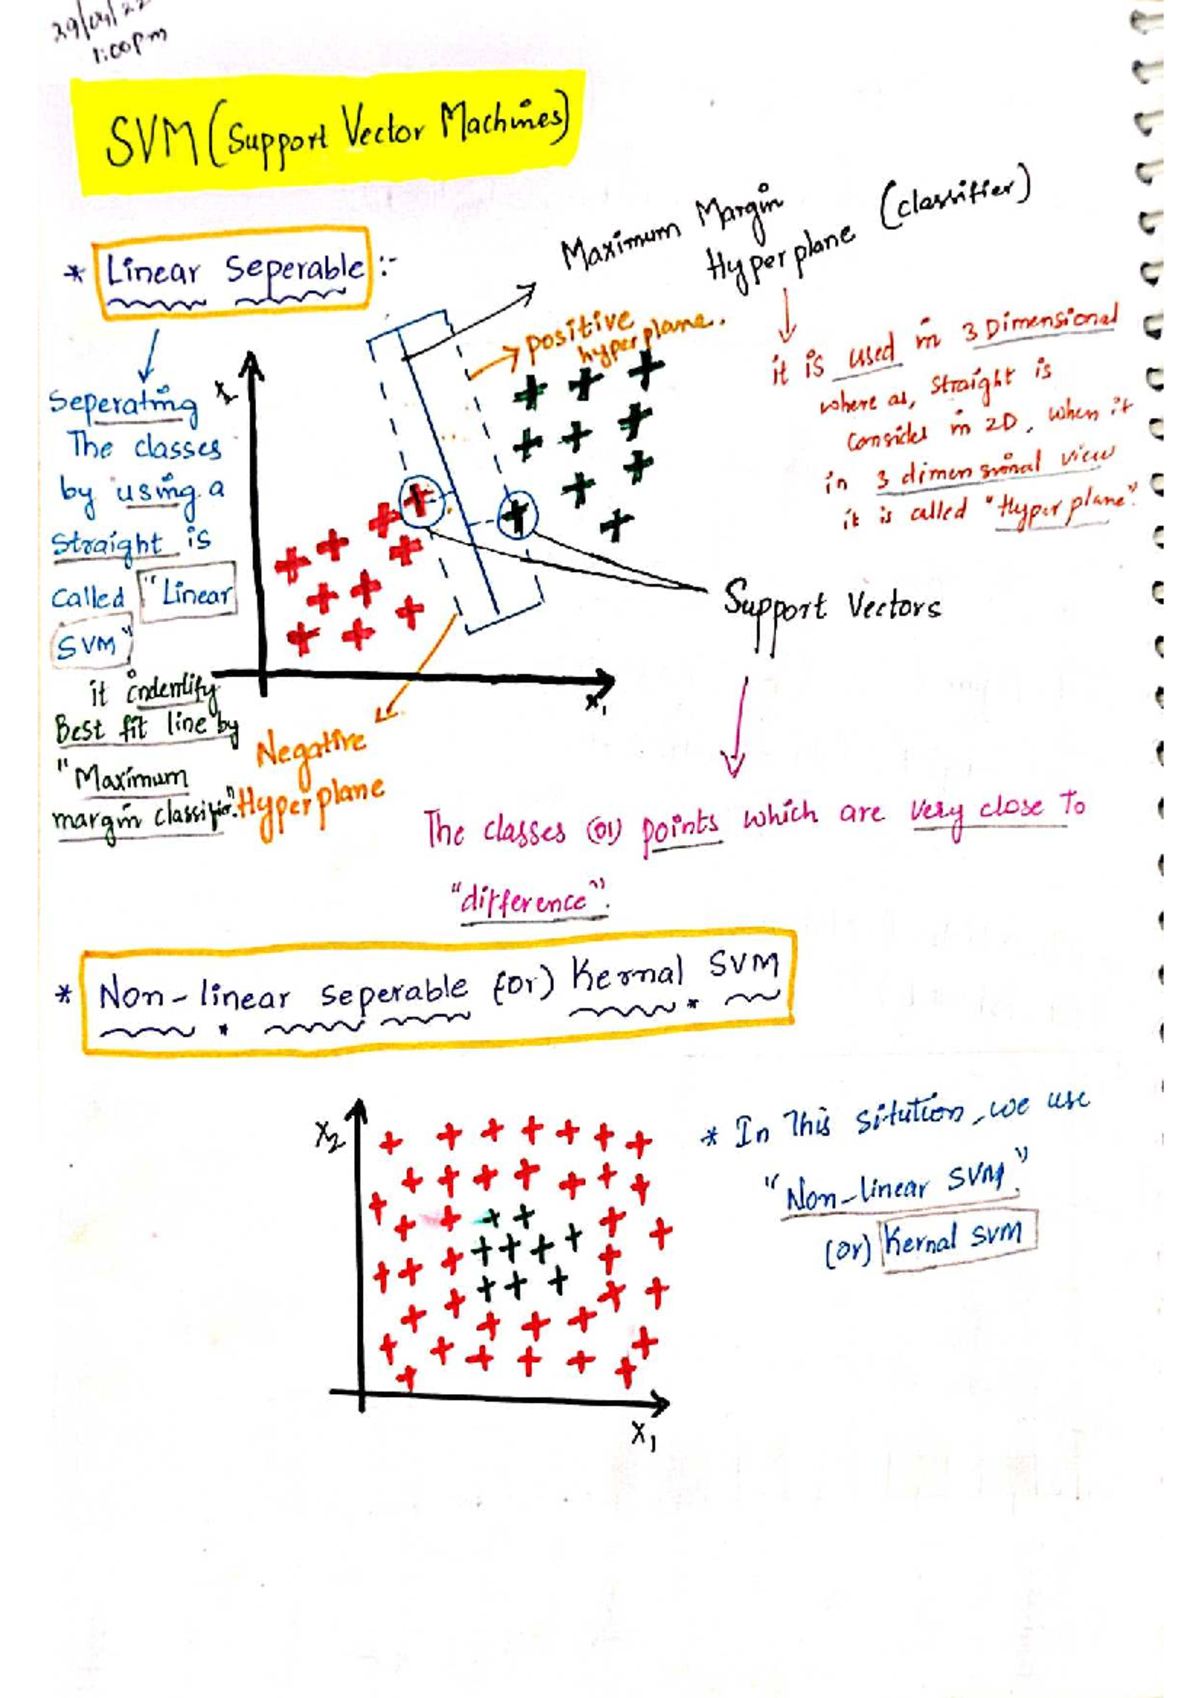 29/04/22
1:00pm
SVM (Support Vector Machines)
* Linear Seperable :-
Maximum Margin
Hyperplane (classifier)
positive
hyperplane.
it is used in 3 Dimensional
where as, straight is
Consider in 2D, when it
in 3 dimensional view
it is called "Hyperplane".
Seperating
The classes
by using a
Straight is
called "Linear
SVM"
it indentify
Best fit line by
"Maximum
margin classifier".
X2
X1
Support Vectors
Negative
Hyperplane
The classes (or) points which are very close to
"difference".
* Non-linear seperable (or) Kernal SVM
X2
X1
* In This sitution, we use
"Non-linear SVM."
(or) Kernal SVM